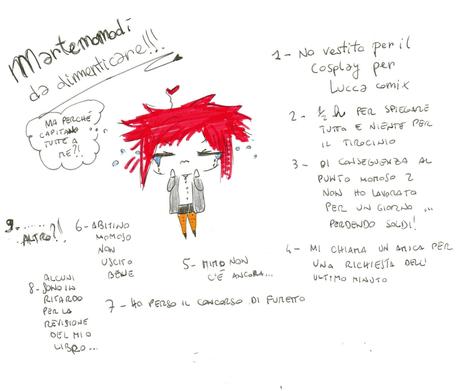 Martemomodì
da dimenticare!!!
MA PERCHÉ
CAPITANO
TUTTE A
ME?!
1- NO VESTITO PER IL
COSPLAY PER
LUCCA COMIX
2- ½ h PER SPIEGARE
TUTTO E NIENTE PER
IL TIROCINIO
3- DI CONSEGUENZA AL
PUNTO MOMOSO 2
NON HO LAVORATO
PER UN GIORNO...
PERDENDO SOLDI!
4- MI CHIAMA UN'AMICA PER
UNA RICHIESTA DELL'
ULTIMO MINUTO
5- MIMO NON
C'È ANCORA...
6- ABITINO
MOMOSO
NON
USCITO
BENE
7- HO PERSO IL CONCORSO DI FURETTO
ALCUNI
8- SONO IN
RITARDO
PER LA
REVISIONE
DEL MIO
LIBRO...
9-.......
ALTRO?!